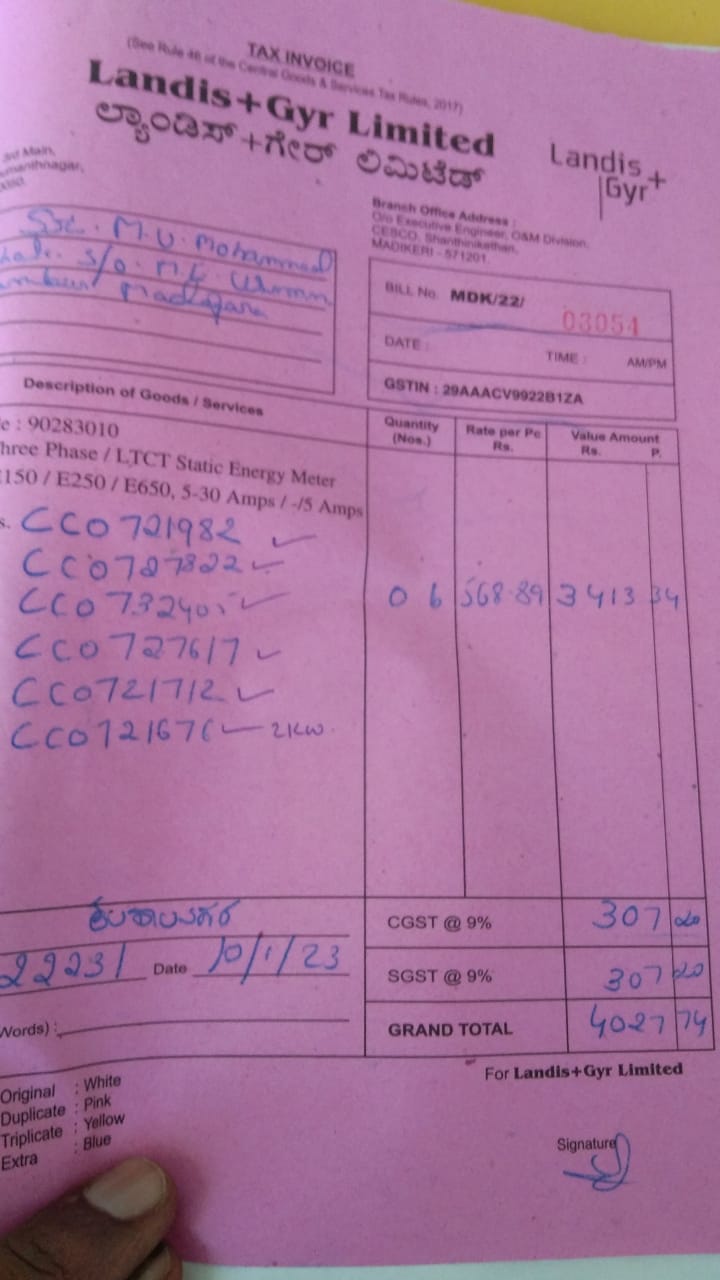 TAX INVOICE
(See Rule 46 of the Central Goods & Services Tax Rules, 2017)
Landis+Gyr Limited
ಲ್ಯಾಂಡಿಸ್+ಗೇರ್ ಲಿಮಿಟೆಡ್
Landis+
Gyr
3rd Main,
Branch Office Address :
O/o Executive Engineer, O&M Division,
CESCO, Shanthinikethan,
MADIKERI - 571201.
M.U. Mohammed
S/O. M.
BILL No. MDK/22/ 03054
DATE : TIME : AM/PM
GSTIN : 29AAACV9922B1ZA
Description of Goods / Services
Quantity (Nos.)
Rate per Pc Rs.
Value Amount Rs. P.
: 90283010
Three Phase / LTCT Static Energy Meter
E150 / E250 / E650, 5-30 Amps / -/5 Amps
CC0721982
CC0727822
CC073240
06 568.89 3413 34
CC0727617
CC0721712
CC072167 2KW.
CGST @ 9% 307 20
22231 Date 10/1/23
SGST @ 9% 307 20
Words) :
GRAND TOTAL 4027 74
For Landis+Gyr Limited
Original : White
Duplicate : Pink
Triplicate : Yellow
Extra : Blue
Signature